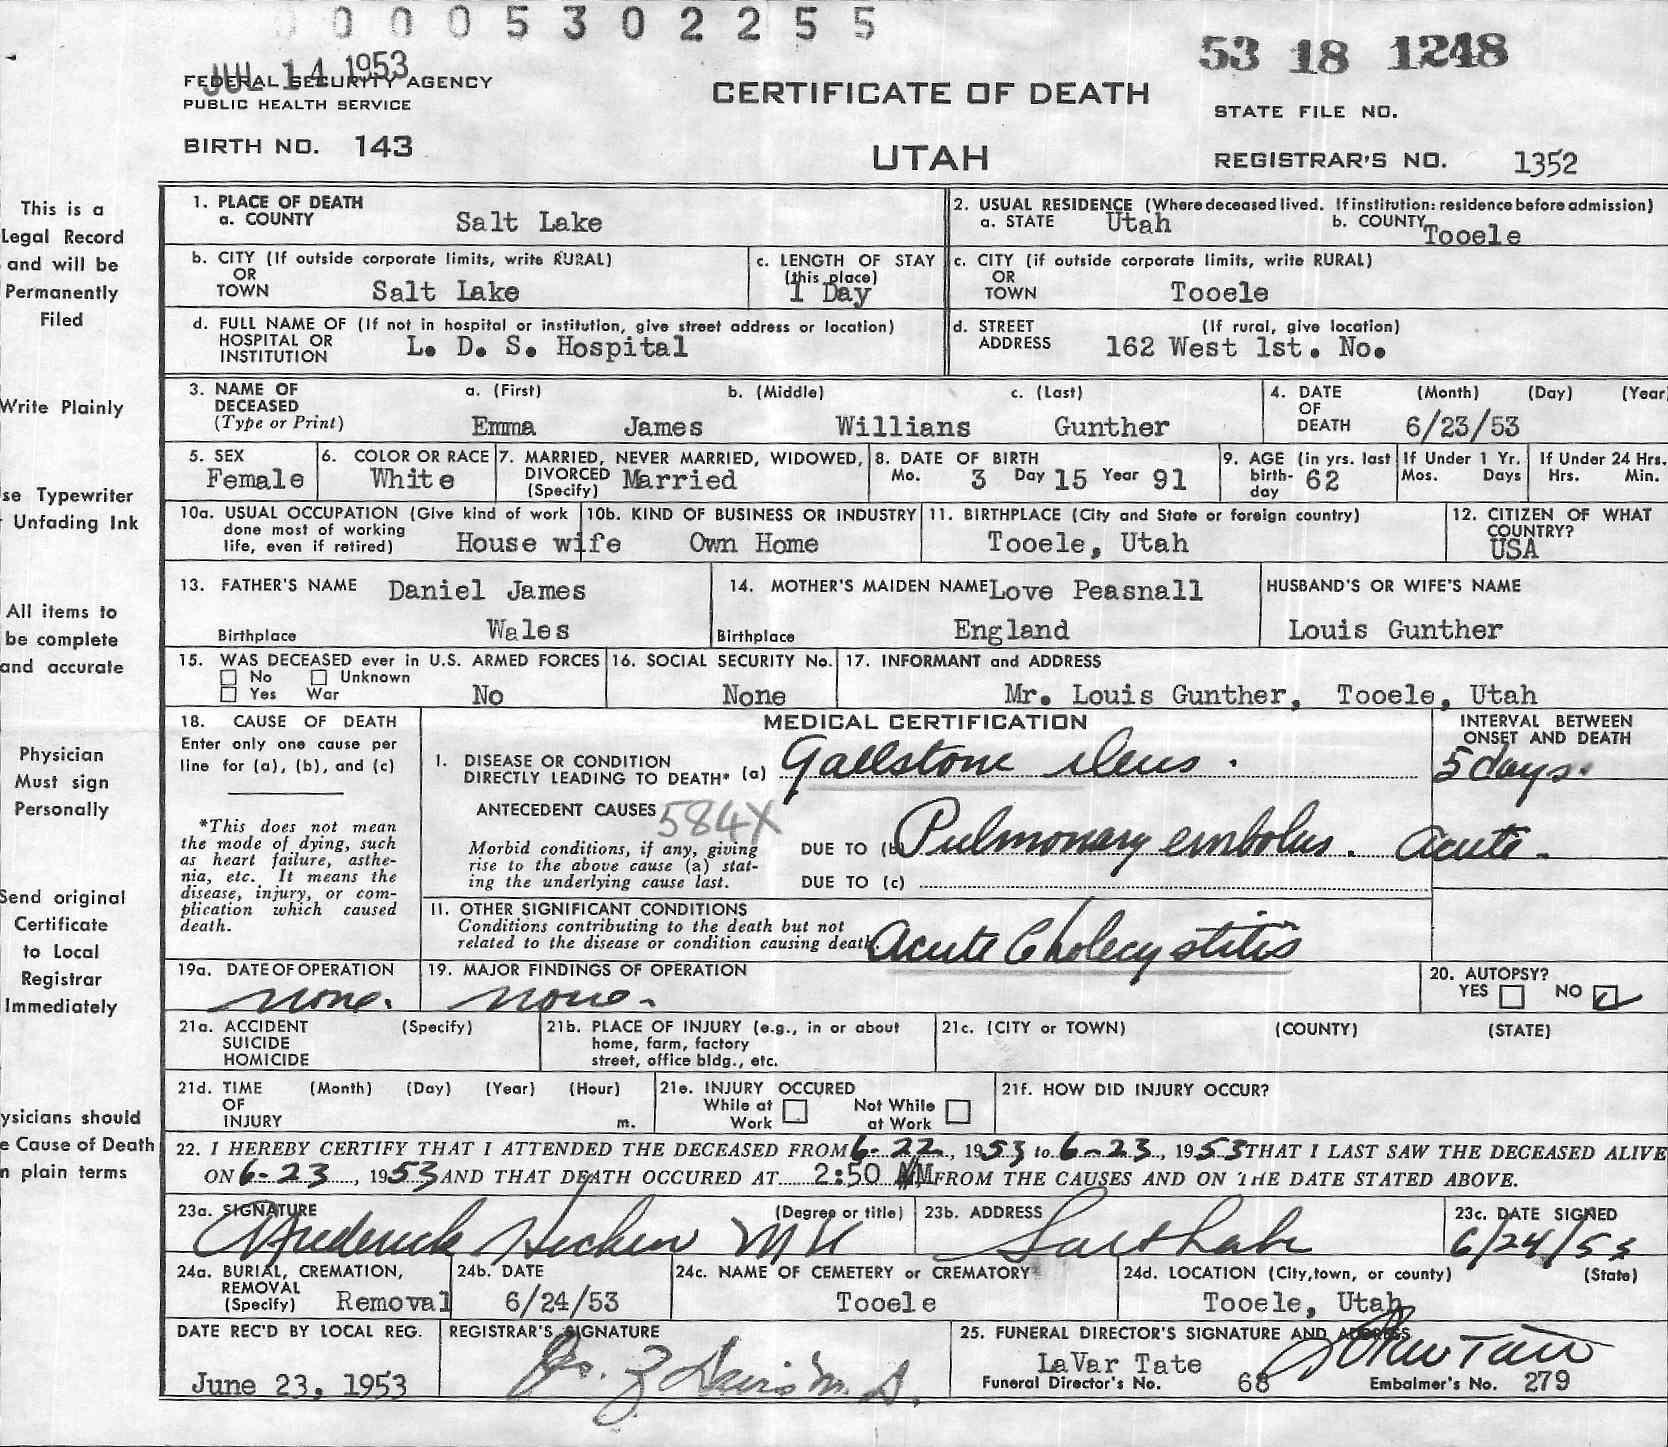 0 0 0 5 3 0 2 2 5 5
53 18 1248
JUL 14 1953
FEDERAL SECURITY AGENCY
PUBLIC HEALTH SERVICE
CERTIFICATE OF DEATH
STATE FILE NO.
BIRTH NO. 143
UTAH
REGISTRAR'S NO. 1352
This is a
Legal Record
and will be
Permanently
Filed
Write Plainly
se Typewriter
Unfading Ink
All items to
be complete
and accurate
Physician
Must sign
Personally
Send original
Certificate
to Local
Registrar
Immediately
ysicians should
e Cause of Death
n plain terms
1. PLACE OF DEATH
a. COUNTY Salt Lake
2. USUAL RESIDENCE (Where deceased lived. If institution: residence before admission)
a. STATE Utah b. COUNTY Tooele
b. CITY (If outside corporate limits, write RURAL)
OR
TOWN Salt Lake
c. LENGTH OF STAY
(this place)
1 Day
c. CITY (if outside corporate limits, write RURAL)
OR
TOWN Tooele
d. FULL NAME OF (If not in hospital or institution, give street address or location)
HOSPITAL OR
INSTITUTION L. D. S. Hospital
d. STREET (If rural, give location)
ADDRESS 162 West 1st. No.
3. NAME OF
DECEASED
(Type or Print)
a. (First) b. (Middle) c. (Last)
Emma James Willians Gunther
4. DATE (Month) (Day) (Year
OF
DEATH 6/23/53
5. SEX
Female
6. COLOR OR RACE
White
7. MARRIED, NEVER MARRIED, WIDOWED,
DIVORCED
(Specify) Married
8. DATE OF BIRTH
Mo. 3 Day 15 Year 91
9. AGE (in yrs. last
birth-
day 62
If Under 1 Yr.
Mos. Days
If Under 24 Hrs.
Hrs. Min.
10a. USUAL OCCUPATION (Give kind of work
done most of working
life, even if retired) House wife
10b. KIND OF BUSINESS OR INDUSTRY
Own Home
11. BIRTHPLACE (City and State or foreign country)
Tooele, Utah
12. CITIZEN OF WHAT
COUNTRY?
USA
13. FATHER'S NAME Daniel James
Birthplace Wales
14. MOTHER'S MAIDEN NAME Love Peasnall
Birthplace England
HUSBAND'S OR WIFE'S NAME
Louis Gunther
15. WAS DECEASED ever in U.S. ARMED FORCES
No Unknown
Yes War No
16. SOCIAL SECURITY No.
None
17. INFORMANT and ADDRESS
Mr. Louis Gunther, Tooele, Utah
18. CAUSE OF DEATH
Enter only one cause per
line for (a), (b), and (c)
*This does not mean
the mode of dying, such
as heart failure, asthe-
nia, etc. It means the
disease, injury, or com-
plication which caused
death.
MEDICAL CERTIFICATION
INTERVAL BETWEEN
ONSET AND DEATH
1. DISEASE OR CONDITION
DIRECTLY LEADING TO DEATH* (a) Gallstone ileus. 5 days.
ANTECEDENT CAUSES 584X
Morbid conditions, if any, giving
rise to the above cause (a) stat-
ing the underlying cause last.
DUE TO (b) Pulmonary embolus. Acute.
DUE TO (c)
11. OTHER SIGNIFICANT CONDITIONS
Conditions contributing to the death but not
related to the disease or condition causing death. Acute Cholecystitis
19a. DATE OF OPERATION
none.
19. MAJOR FINDINGS OF OPERATION
none.
20. AUTOPSY?
YES NO
21a. ACCIDENT (Specify)
SUICIDE
HOMICIDE
21b. PLACE OF INJURY (e.g., in or about
home, farm, factory
street, office bldg., etc.
21c. (CITY or TOWN) (COUNTY) (STATE)
21d. TIME (Month) (Day) (Year) (Hour)
OF
INJURY m.
21e. INJURY OCCURED
While at Not While
Work at Work
21f. HOW DID INJURY OCCUR?
22. I HEREBY CERTIFY THAT I ATTENDED THE DECEASED FROM 6-22, 1953 to 6-23, 1953 THAT I LAST SAW THE DECEASED ALIVE
ON 6-23, 1953 AND THAT DEATH OCCURED AT 2:50 AM FROM THE CAUSES AND ON THE DATE STATED ABOVE.
23a. SIGNATURE (Degree or title)
Frederick MD
23b. ADDRESS
Salt Lake
23c. DATE SIGNED
6/24/53
24a. BURIAL, CREMATION,
REMOVAL
(Specify) Removal
24b. DATE
6/24/53
24c. NAME OF CEMETERY or CREMATORY
Tooele
24d. LOCATION (City, town, or county) (State)
Tooele, Utah
DATE REC'D BY LOCAL REG.
June 23, 1953
REGISTRAR'S SIGNATURE
Davis M. D.
25. FUNERAL DIRECTOR'S SIGNATURE AND ADDRESS
LaVar Tate
Funeral Director's No. 68 Embalmer's No. 279